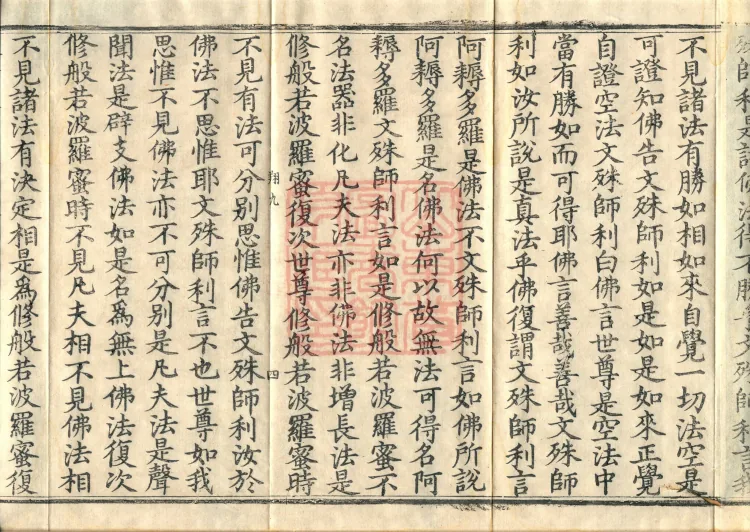 不見諸法有勝如相如來自覺一切法空是
可證知佛告文殊師利如是如是如來正覺
自證空法文殊師利白佛言世尊是空法中
當有勝如而可得耶佛言善哉善哉文殊師
利如汝所說是真法乎佛復謂文殊師利言
阿耨多羅是佛法不文殊師利言如佛所說
阿耨多羅是名佛法何以故無法可得名阿
耨多羅文殊師利言如是修般若波羅蜜不
名法器非化凡夫法亦非佛法非增長法是
修般若波羅蜜復次世尊修般若波羅蜜時
翔九 四
不見有法可分別思惟佛告文殊師利汝於
佛法不思惟耶文殊師利言不也世尊如我
思惟不見佛法亦不可分別是凡夫法是聲
聞法是辟支佛法如是名爲無上佛法復次
修般若波羅蜜時不見凡夫相不見佛法相
不見諸法有決定相是爲修般若波羅蜜復